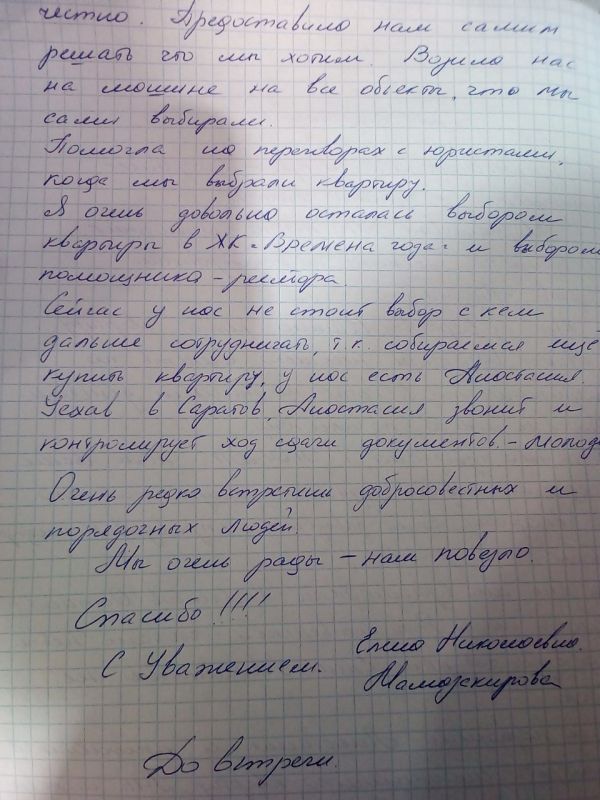 честно. Предоставила нам самим
решать что мы хотим. Возила нас
на машине на все объекты, что мы
сами выбирали.
Помогла на переговорах с юристами,
когда мы выбрали квартиру.
Я очень довольна осталась выбором
квартиры в ЖК "Времена года" и выбором
помощника - риелтора.
Сейчас у нас не стоит выбор с кем
дальше сотрудничать, т.к. собираемся ещё
купить квартиру, у нас есть Анастасия.
Уехав в Саратов, Анастасия звонит и
контролирует ход сдачи документов. - Молод
Очень редко встретишь добросовестных и
порядочных людей.
Мы очень рады - нам повезло.
Спасибо!!!!
С Уважением. Елена Николаевна.
До встречи.